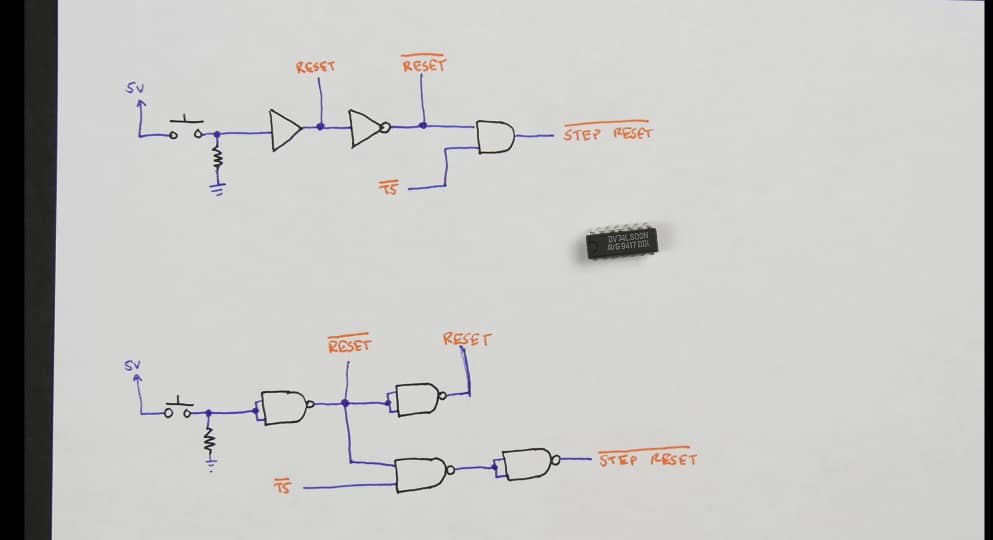 RESET
R̅E̅S̅E̅T̅
5V
S̅T̅E̅P̅ R̅E̅S̅E̅T̅
T̅5̅
DV74LS00N
R̅E̅S̅E̅T̅
RESET
5V
S̅T̅E̅P̅ R̅E̅S̅E̅T̅
T̅5̅